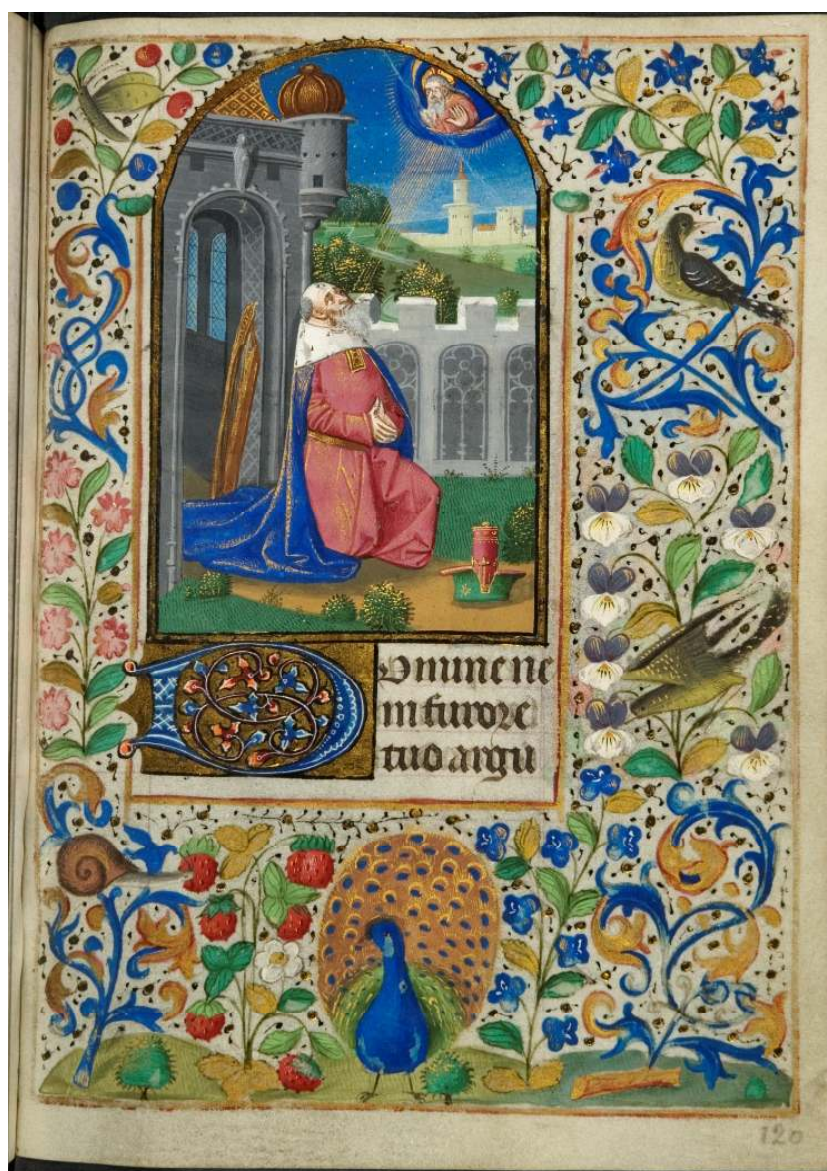 Domine ne
in furore
tuo argu
120